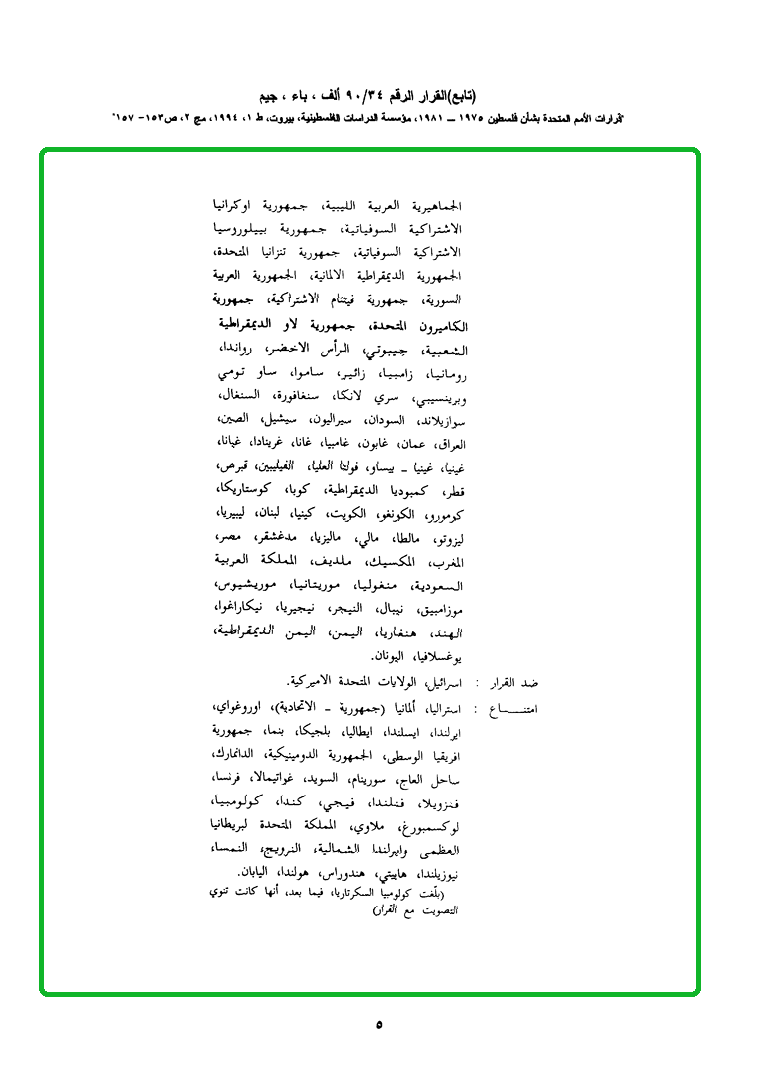 (تابع)القرار الرقم ٩٠/٣٤ ألف ، باء ، جيم
"قرارات الأمم المتحدة بشأن فلسطين ١٩٧٥ ــ ١٩٨١، مؤسسة الدراسات الفلسطينية، بيروت، ط ١، ١٩٩٤، مج ٢، ص١٥٣- ١٥٧"
الجماهيرية العربية الليبية، جمهورية اوكرانيا
الاشتراكية السوفياتية، جمهورية بييلوروسيا
الاشتراكية السوفياتية، جمهورية تنزانيا المتحدة،
الجمهورية الديمقراطية الالمانية، الجمهورية العربية
السورية، جمهورية فيتنام الاشتراكية، جمهورية
الكاميرون المتحدة، جمهورية لاو الديمقراطية
الشعبية، جيبوتي، الرأس الاخضر، رواندا،
رومانيا، زامبيا، زائير، ساموا، ساو تومي
وبرينسيبي، سري لانكا، سنغافورة، السنغال،
سوازيلاند، السودان، سيراليون، سيشيل، الصين،
العراق، عمان، غابون، غامبيا، غانا، غرينادا، غيانا،
غينيا، غينيا ـ بيساو، فولتا العليا، الفيليبين، قبرص،
قطر، كمبوديا الديمقراطية، كوبا، كوستاريكا،
كومورو، الكونغو، الكويت، كينيا، لبنان، ليبيريا،
ليزوتو، مالطا، مالي، ماليزيا، مدغشقر، مصر،
المغرب، المكسيك، ملديف، المملكة العربية
السعودية، منغوليا، موريتانيا، موريشيوس،
موزامبيق، نيبال، النيجر، نيجيريا، نيكاراغوا،
الهند، هنغاريا، اليمن، اليمن الديمقراطية،
يوغسلافيا، اليونان.
ضد القرار : اسرائيل، الولايات المتحدة الاميركية.
امتنـــــاع : استراليا، ألمانيا (جمهورية ـ الاتحادية)، اوروغواي،
ايرلندا، ايسلندا، ايطاليا، بلجيكا، بنما، جمهورية
افريقيا الوسطى، الجمهورية الدومينيكية، الدانمارك،
ساحل العاج، سورينام، السويد، غواتيمالا، فرنسا،
فنزويلا، فنلندا، فيجي، كندا، كولومبيا،
لوكسمبورغ، ملاوي، المملكة المتحدة لبريطانيا
العظمى وايرلندا الشمالية، النرويج، النمسا،
نيوزيلندا، هاييتي، هندوراس، هولندا، اليابان.
(بلّغت كولومبيا السكرتاريا، فيما بعد، أنها كانت تنوي
التصويت مع القرار)
٥